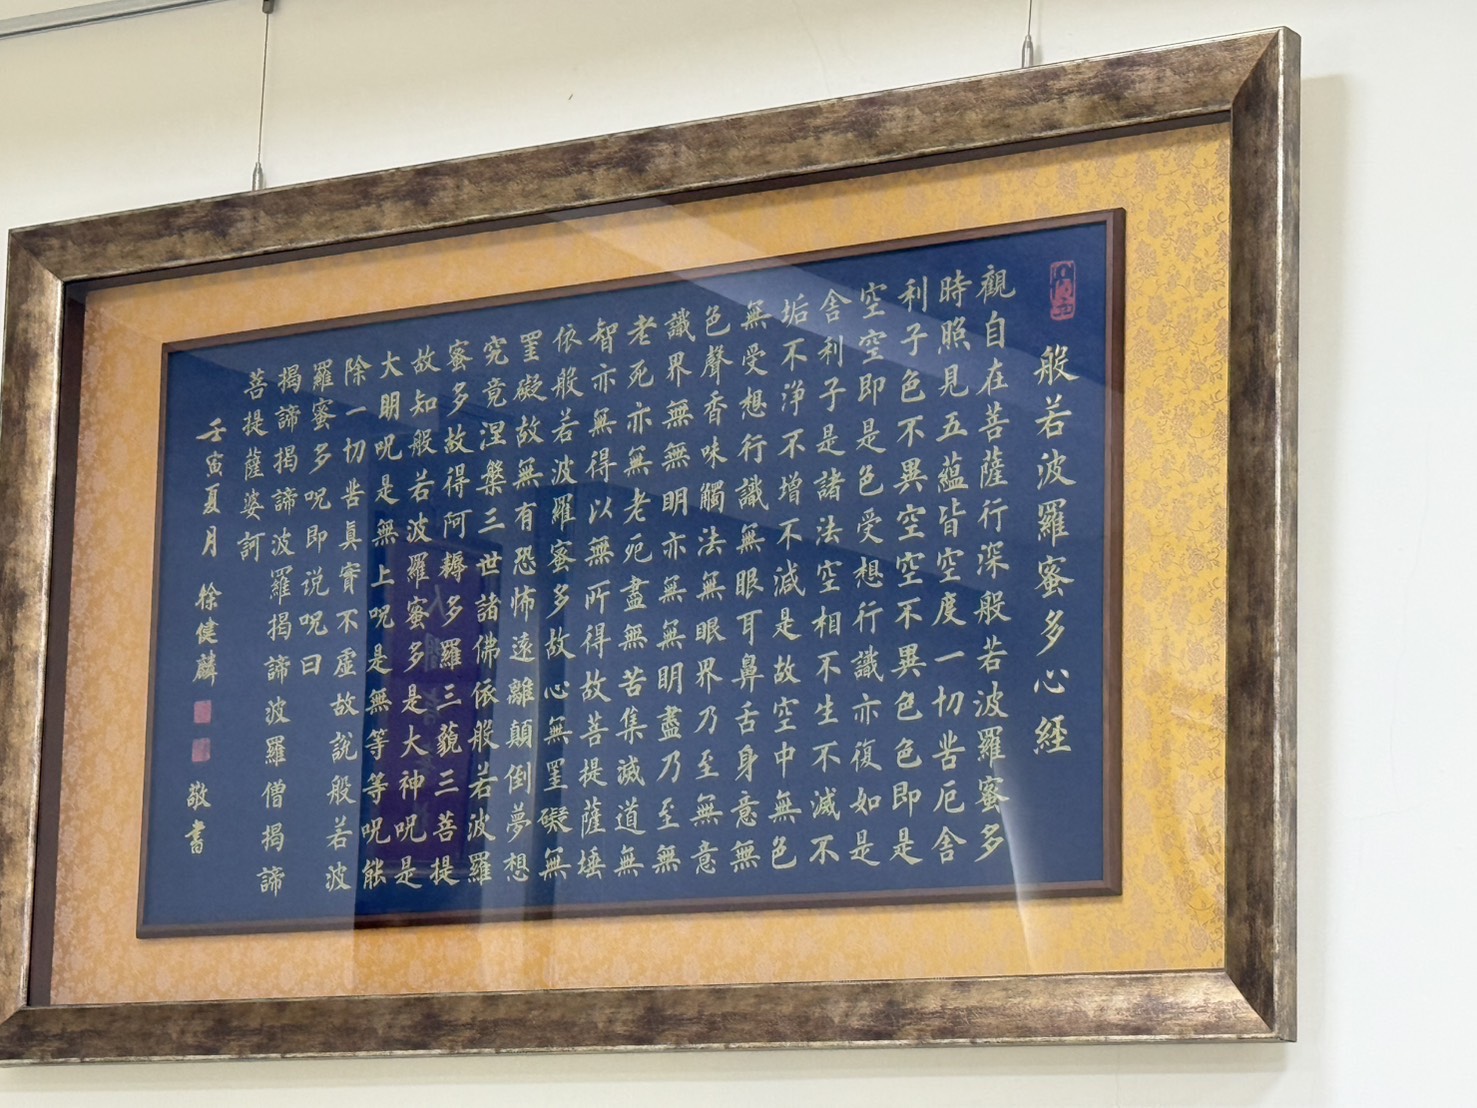 般若波羅蜜多心經
觀自在菩薩行深般若波羅蜜多
時照見五蘊皆空度一切苦厄舍
利子色不異空空不異色色即是
空空即是色受想行識亦復如是
舍利子是諸法空相不生不滅不
垢不淨不增不減是故空中無色
無受想行識無眼耳鼻舌身意無
色聲香味觸法無眼界乃至無意
識界無無明亦無無明盡乃至無
老死亦無老死盡無苦集滅道無
智亦無得以無所得故菩提薩埵
依般若波羅蜜多故心無罣礙無
罣礙故無有恐怖遠離顛倒夢想
究竟涅槃三世諸佛依般若波羅
蜜多故得阿耨多羅三藐三菩提
故知般若波羅蜜多是大神呪是
大明呪是無上呪是無等等呪能
除一切苦真實不虛故説般若波
羅蜜多呪即说呪曰
揭諦揭諦波羅揭諦波羅僧揭諦
菩提薩婆訶
壬寅夏月 徐健麟 敬書